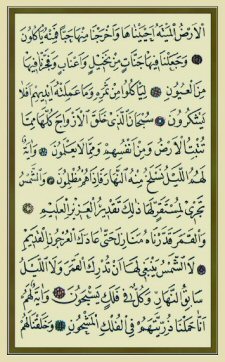 الْاَرْضُ الْمَيْتَةُ اَحْيَيْنَاهَا وَاَخْرَجْنَا مِنْهَا حَبًّا فَمِنْهُ يَاْكُلُونَ
وَجَعَلْنَا فِيهَا جَنَّاتٍ مِنْ نَخِيلٍ وَاَعْنَابٍ وَفَجَّرْنَا فِيهَا
مِنَ الْعُيُونِ لِيَاْكُلُوا مِنْ ثَمَرِهِ وَمَا عَمِلَتْهُ اَيْدِيهِمْ اَفَلَا
يَشْكُرُونَ سُبْحَانَ الَّذِى خَلَقَ الْاَزْوَاجَ كُلَّهَا مِمَّا
تُنْبِتُ الْاَرْضُ وَمِنْ اَنْفُسِهِمْ وَمِمَّا لَا يَعْلَمُونَ وَاٰيَةٌ
لَهُمُ الَّيْلُ نَسْلَخُ مِنْهُ النَّهَارَ فَاِذَا هُمْ مُظْلِمُونَ وَالشَّمْسُ
تَجْرِى لِمُسْتَقَرٍّ لَهَا ذٰلِكَ تَقْدِيرُ الْعَزِيزِ الْعَلِيمِ
وَالْقَمَرَ قَدَّرْنَاهُ مَنَازِلَ حَتّٰى عَادَ كَالْعُرْجُونِ الْقَدِيمِ
لَا الشَّمْسُ يَنْبَغِى لَهَا اَنْ تُدْرِكَ الْقَمَرَ وَلَا الَّيْلُ
سَابِقُ النَّهَارِ وَكُلٌّ فِى فَلَكٍ يَسْبَحُونَ وَاٰيَةٌ لَهُمْ
اَنَّا حَمَلْنَا ذُرِّيَّتَهُمْ فِى الْفُلْكِ الْمَشْحُونِ وَخَلَقْنَا لَهُمْ